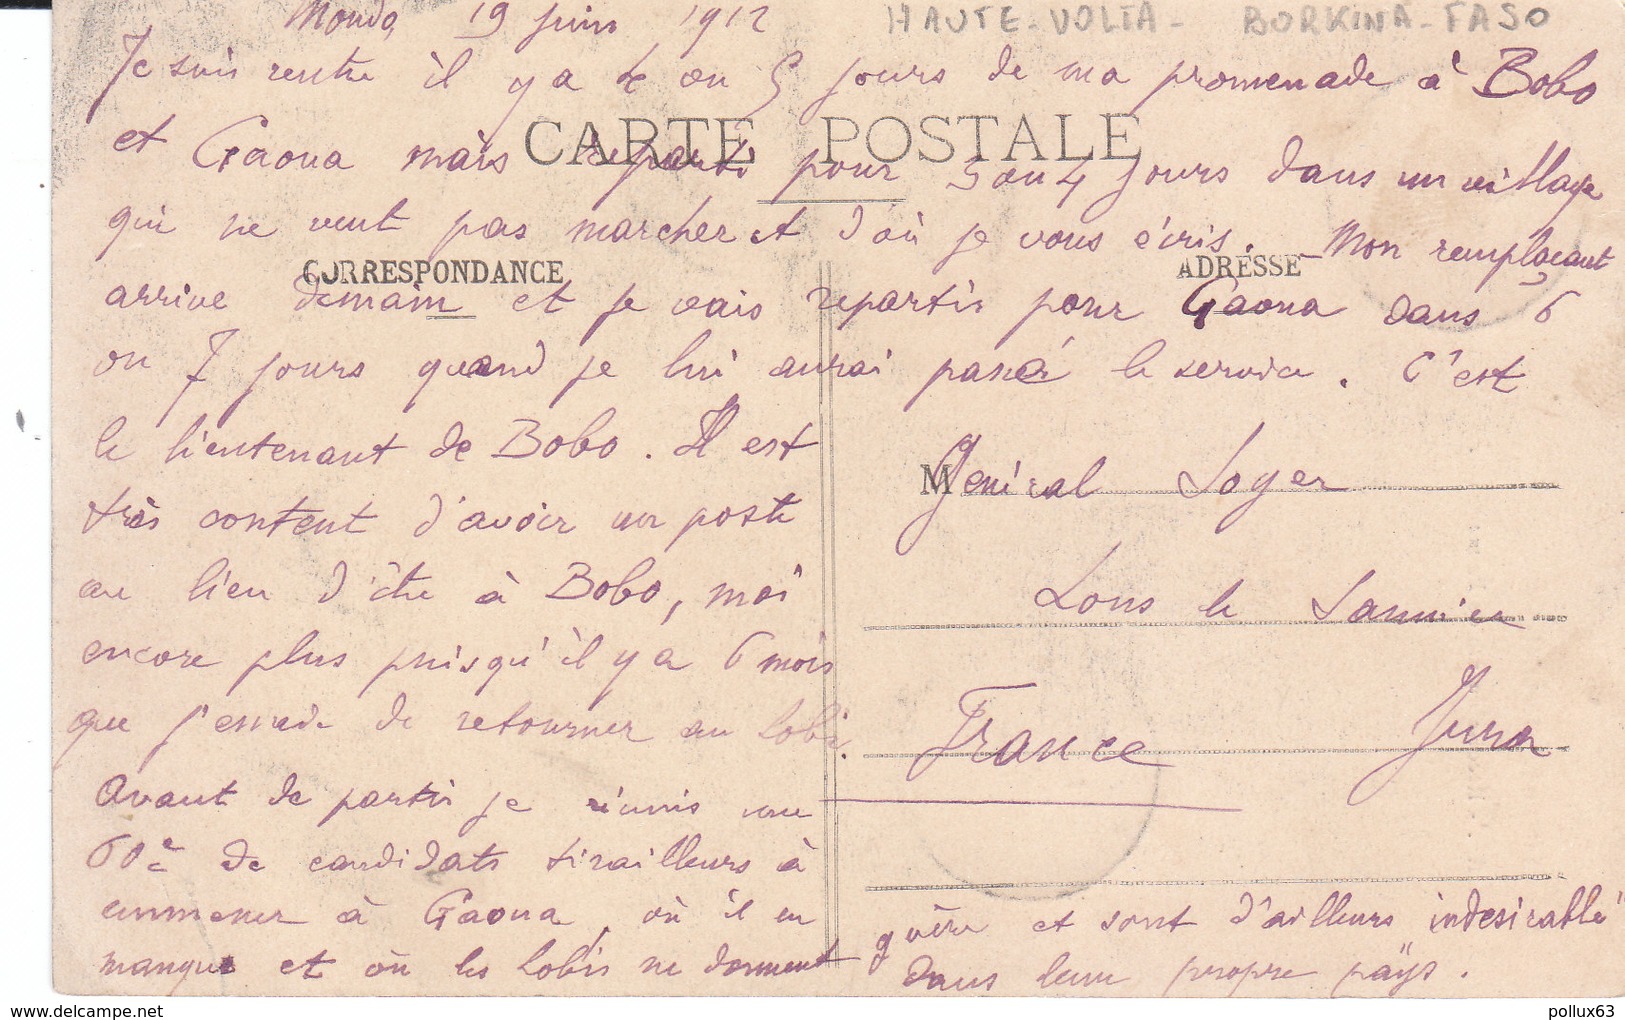 HAUTE-VOLTA - BURKINA-FASO
19 juin 1912
Je suis rentré il y a 4 ou 5 jours de ma promenade à Bobo
et Gaoua mais reparti pour 3 ou 4 jours dans un village
CARTE POSTALE
qui ne veut pas marcher et d'où je vous écris. - Mon remplaçant
CORRESPONDANCE
ADRESSE
arrive demain et je vais repartir pour Gaoua dans 6
ou 7 jours quand je lui aurai passé le service. C'est
le lieutenant de Bobo. Il est
très content d'avoir un poste
au lieu d'être à Bobo, moi
encore plus puisqu'il y a 6 mois
que j'essaie de retourner au Lobi.
Avant de partir je réunis une
60e de candidats tirailleurs à
emmener à Gaoua, où il en
manque et où les Lobis ne donnent
guère et sont d'ailleurs "indesirable"
dans leur propre pays.
M
Général Loyer
Lons le Saunier
France Jura
pollux63